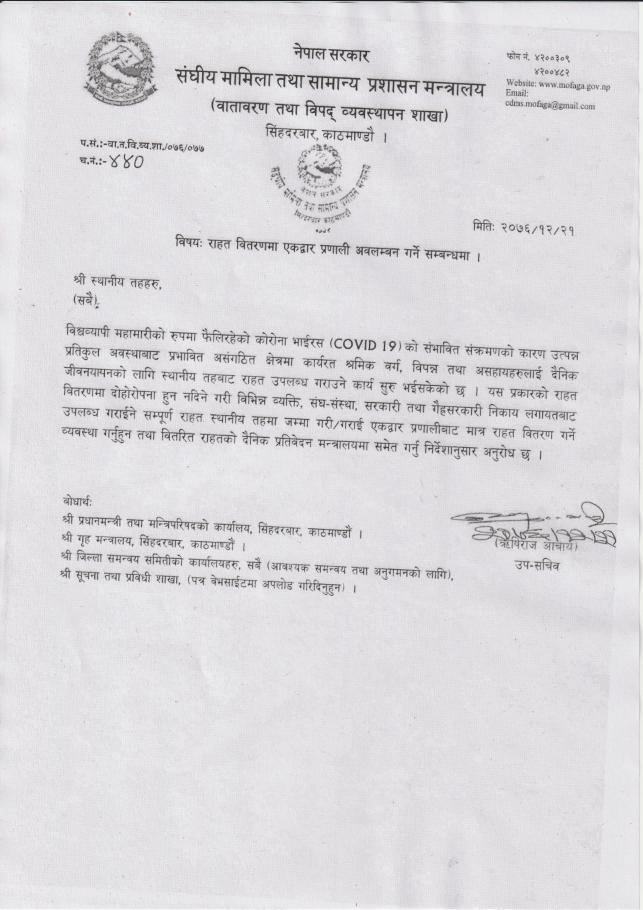 नेपाल सरकार
संघीय मामिला तथा सामान्य प्रशासन मन्त्रालय
(वातावरण तथा विपद् व्यवस्थापन शाखा)
सिंहदरबार, काठमाण्डौ ।
फोन नं. ४२००३०९
४२००४८२
Website: www.mofaga.gov.np
Email:
cdms.mofaga@gmail.com
प.सं.:-वा.त.वि.व्य.शा./०७६/०७७
च.नं.:-४४०
नेपाल सरकार
संघीय मामिला तथा सामान्य प्रशासन मन्त्रालय
सिंहदरबार काठमाण्डौ
मितिः २०७६/१२/२१
विषयः राहत वितरणमा एकद्वार प्रणाली अवलम्बन गर्ने सम्बन्धमा ।
श्री स्थानीय तहहरु,
(सबै);
विश्वव्यापी महामारीको रुपमा फैलिरहेको कोरोना भाईरस (COVID 19) को संभावित संक्रमणको कारण उत्पन्न
प्रतिकुल अवस्थाबाट प्रभावित असंगठित क्षेत्रमा कार्यरत श्रमिक वर्ग, विपन्न तथा असहायहरुलाई दैनिक
जीवनयापनको लागि स्थानीय तहबाट राहत उपलब्ध गराउने कार्य सुरु भईसकेको छ । यस प्रकारको राहत
वितरणमा दोहोरोपना हुन नदिने गरी विभिन्न व्यक्ति, संघ-संस्था, सरकारी तथा गैह्रसरकारी निकाय लगायतबाट
उपलब्ध गराईने सम्पूर्ण राहत स्थानीय तहमा जम्मा गरी/गराई एकद्वार प्रणालीबाट मात्र राहत वितरण गर्ने
व्यवस्था गर्नुहुन तथा वितरित राहतको दैनिक प्रतिवेदन मन्त्रालयमा समेत गर्नु निर्देशानुसार अनुरोध छ ।
बोधार्थः
श्री प्रधानमन्त्री तथा मन्त्रिपरिषदको कार्यालय, सिंहदरबार, काठमाण्डौं ।
श्री गृह मन्त्रालय, सिंहदरबार, काठमाण्डौं ।
श्री जिल्ला समन्वय समितीको कार्यालयहरु, सबै (आवश्यक समन्वय तथा अनुगमनको लागि),
श्री सूचना तथा प्रविधी शाखा, (पत्र वेभसाईटमा अपलोड गरिदिनुहुन) ।
(ऋषिराज आचार्य)
उप-सचिव